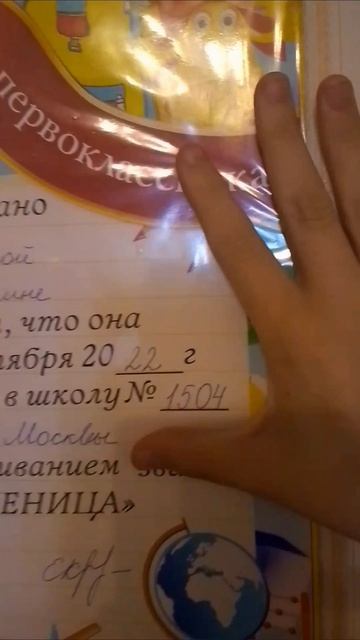 первокласс ка
ано
ой
ине
, что она
тября 20 22 г
в школу № 1504
Москвы
иванием зва
ЕНИЦА»